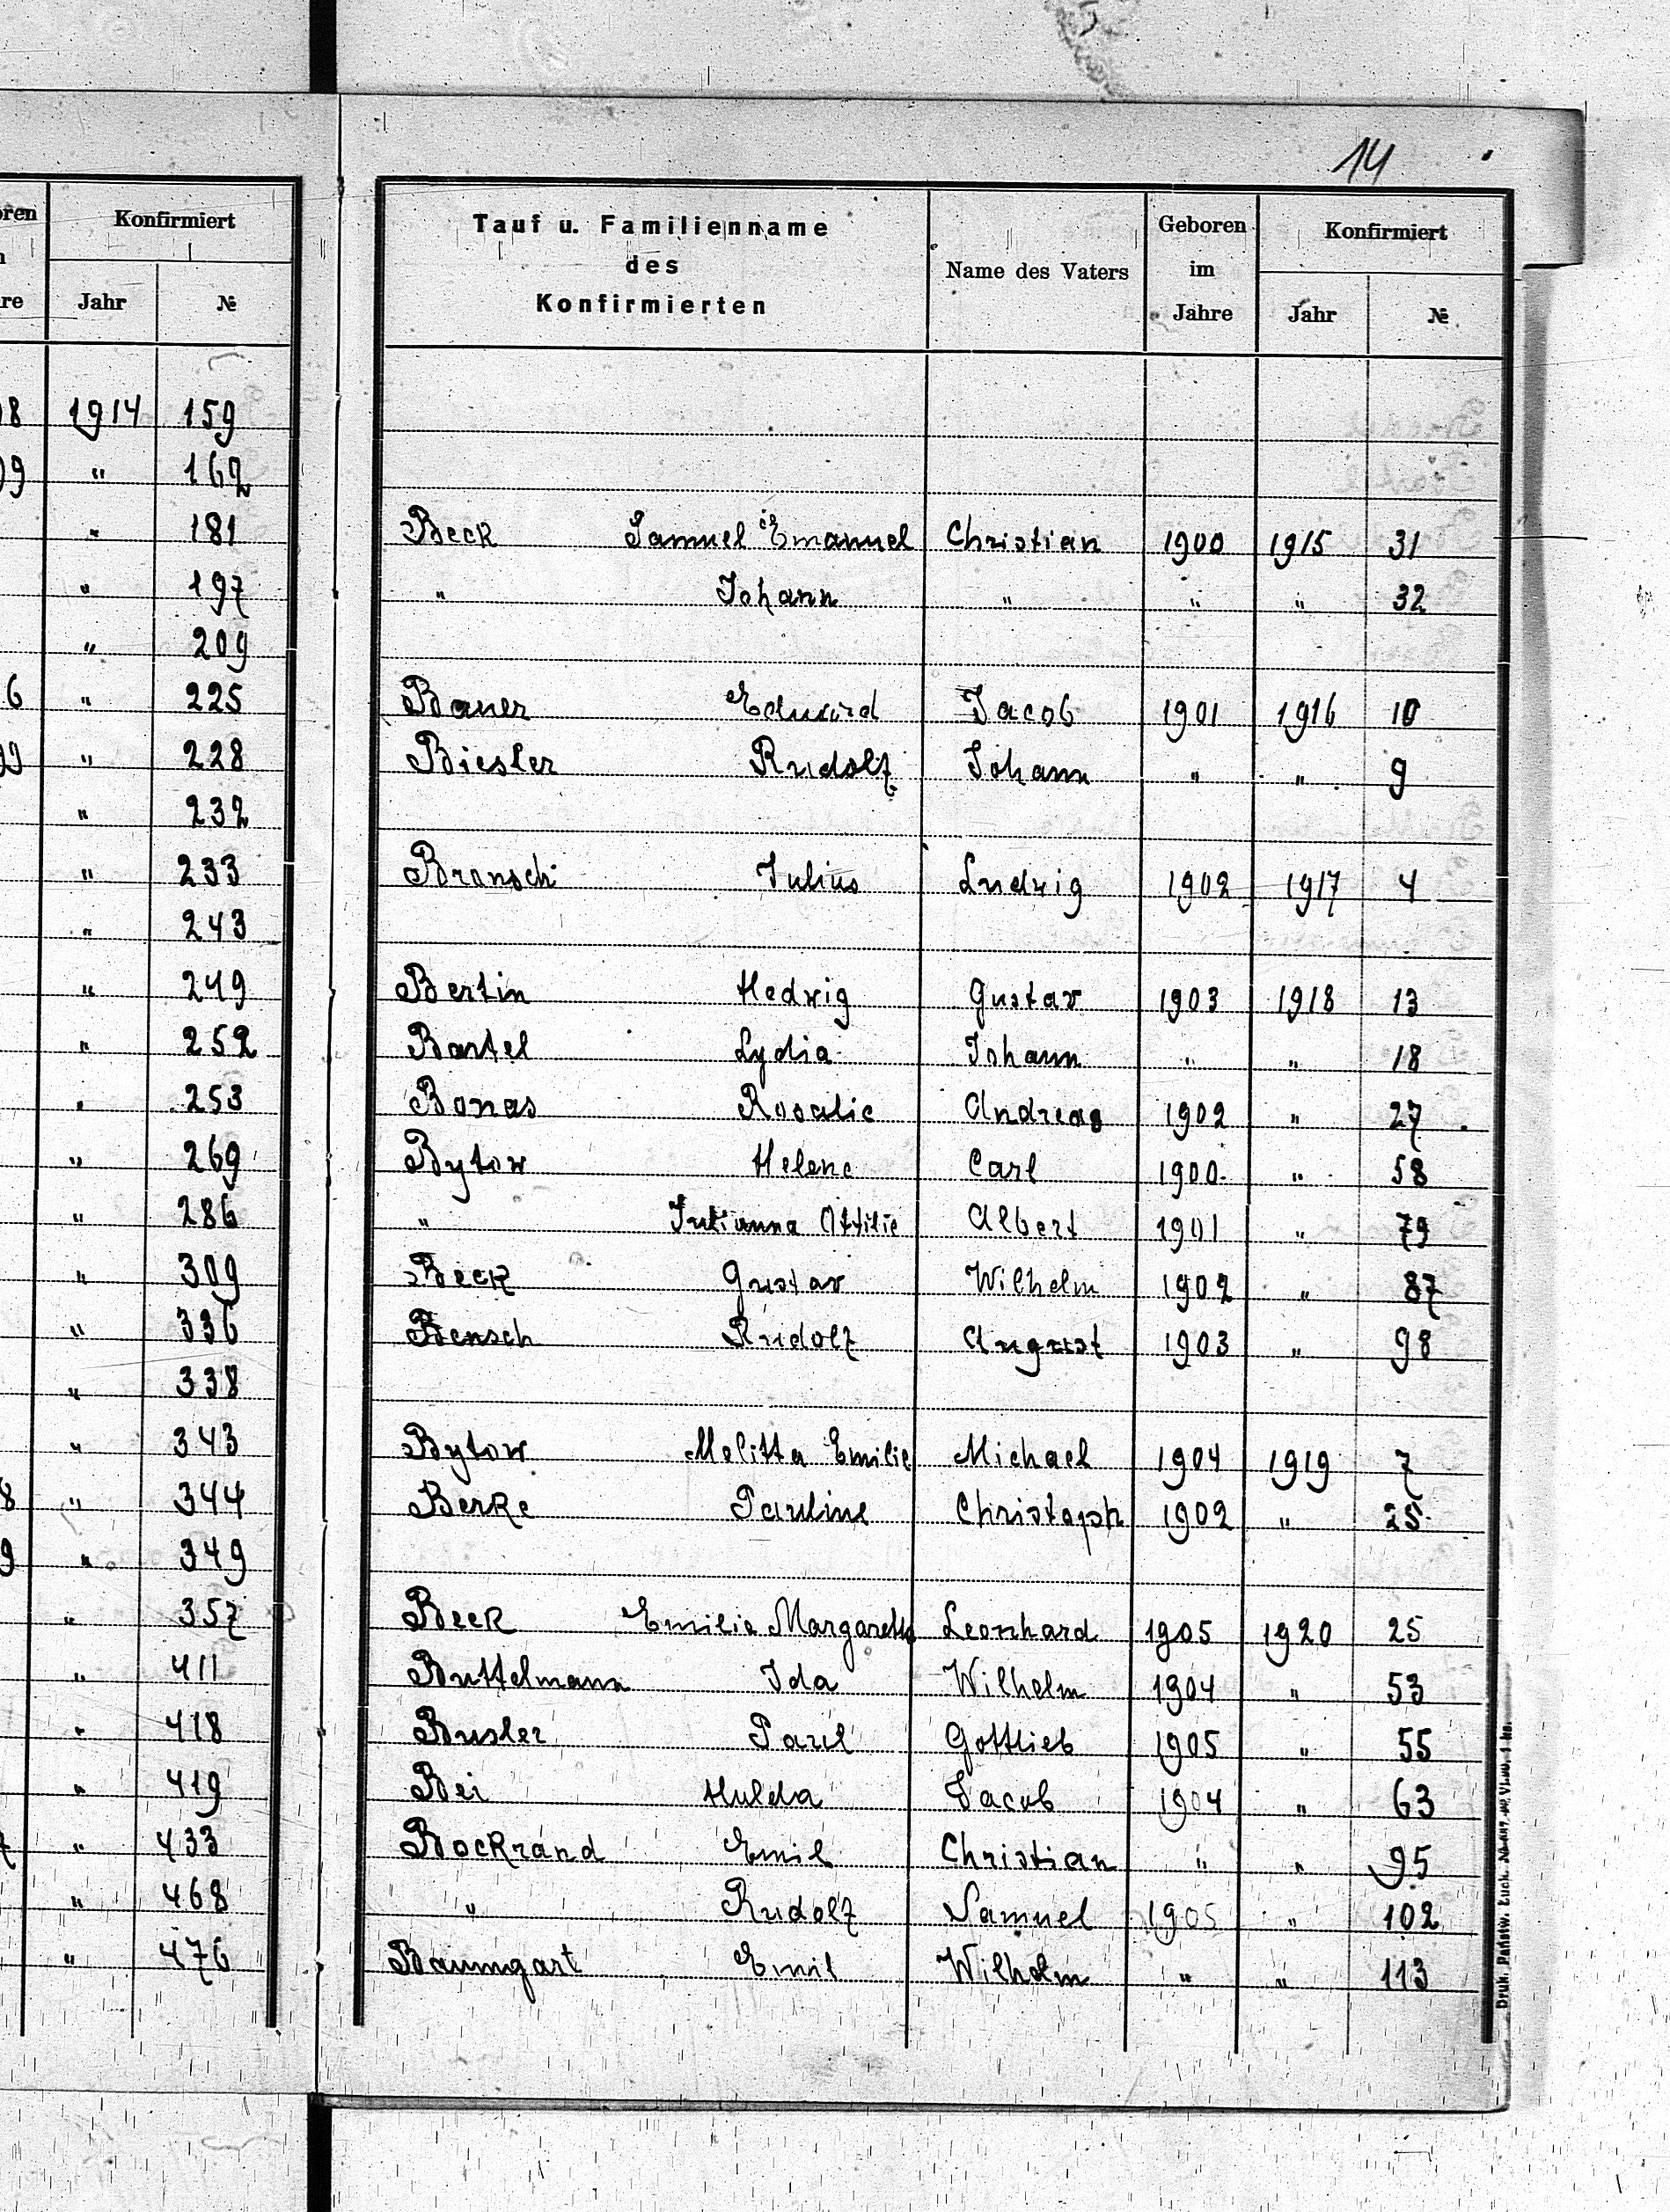 14
oren Konfirmiert
n
re Jahr №
08 1914 159
09 " 162
" 181
" 197
" 209
6 " 225
99 " 228
" 232
" 233
" 243
" 249
" 252
" 253
" 269
" 286
" 309
" 336
" 338
" 343
8 " 344
9 " 349
" 357
" 411
" 418
" 419
" 433
" 468
" 476
Tauf u. Familienname
des
Konfirmierten
Name des Vaters
Geboren
im
Jahre
Konfirmiert
Jahr №
Beck Samuel Emanuel Christian 1900 1915 31
" Johann " " " 32
Bauer Eduard Jacob 1901 1916 10
Biesler Rudolf Johann " " 9
Bronsch Julius Ludwig 1902 1917 4
Bertin Hedwig Gustav 1903 1918 13
Bartel Lydia Johann " " 18
Bonas Rosalie Andreas 1902 " 27
Bytow Helene Carl 1900 " 58
" Julianna Ottilie Albert 1901 " 79
Beck Gustav Wilhelm 1902 " 87
Bensch Rudolf August 1903 " 98
Bytow Melitta Emilie Michael 1904 1919 7
Berke Pauline Christoph 1902 " 25
Beck Emilie Margaretha Leonhard 1905 1920 25
Buttelmann Ida Wilhelm 1904 " 53
Busler Paul Gottlieb 1905 " 55
Bei Hulda Jacob 1904 " 63
Bockrand Emil Christian " " 95
" Rudolf Samuel 1905 " 102
Baumgart Emil Wilhelm " " 113
Druk. Państw. Łuck.